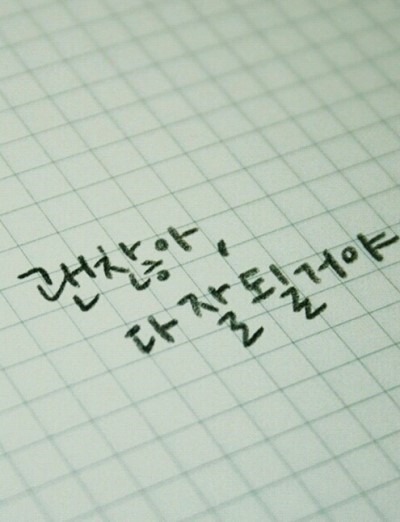 괜찮아,
다 잘 될거야